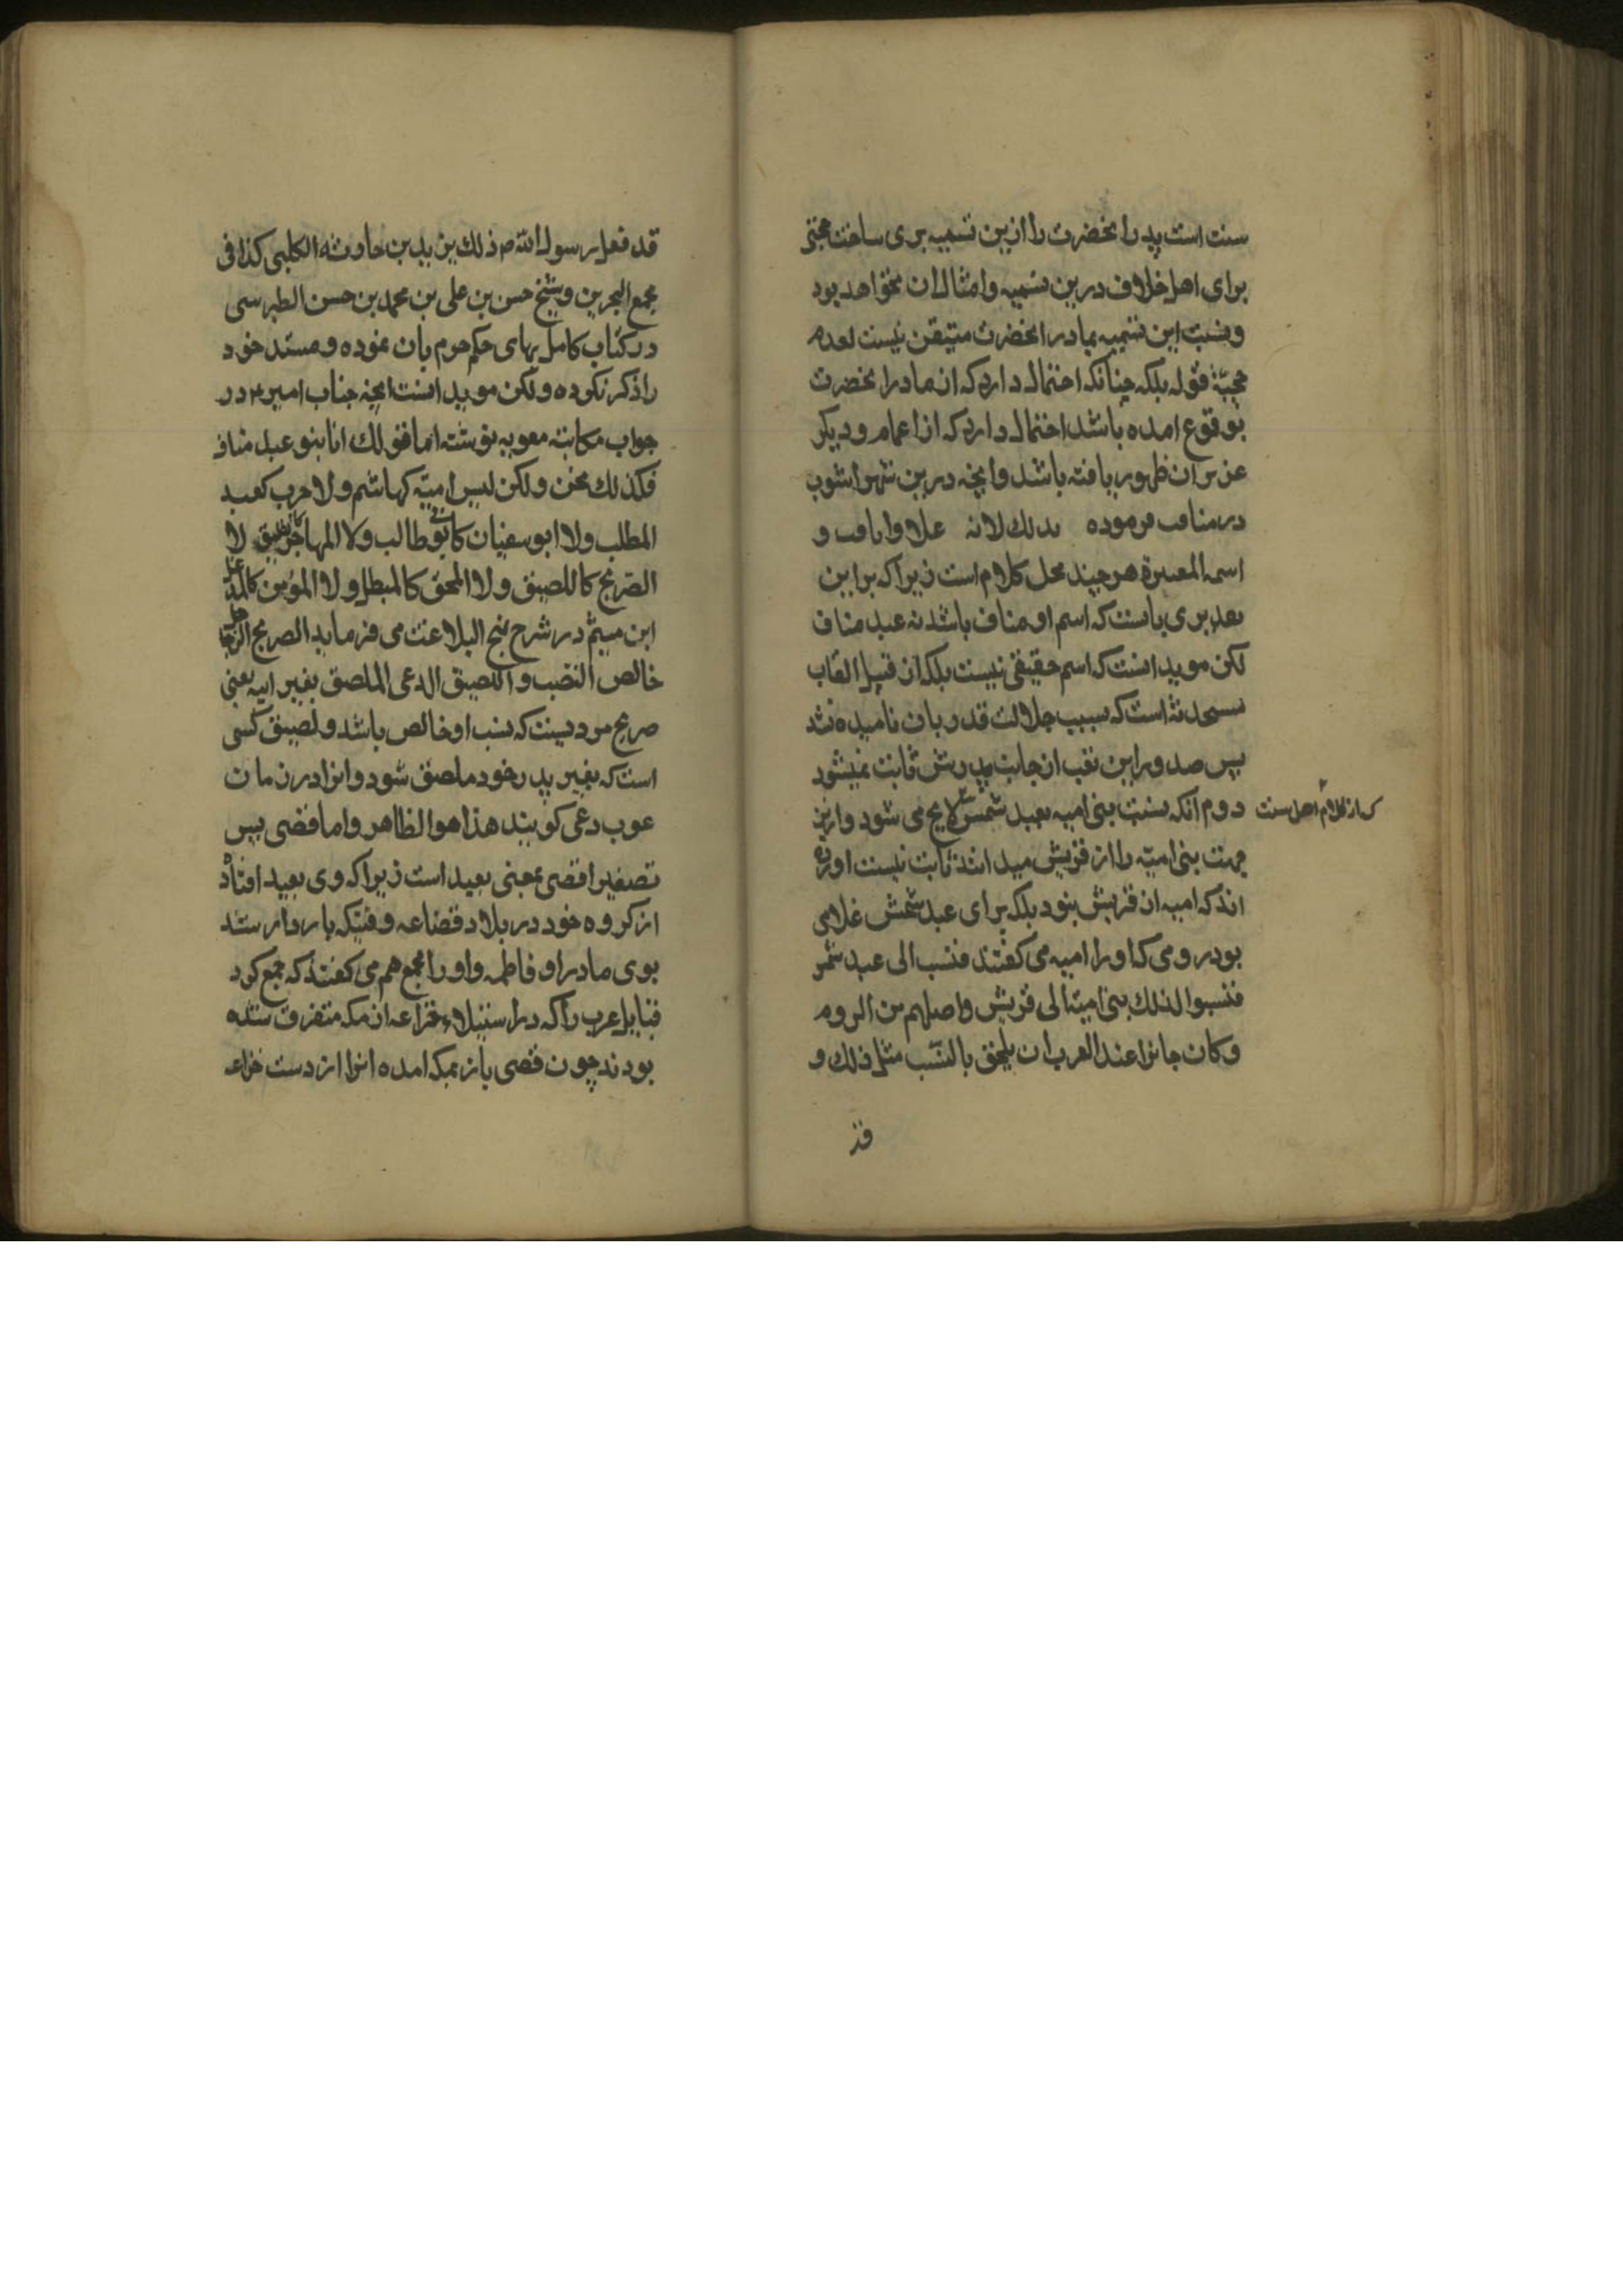 سنت است پدر آنحضرت را ازین تسمیه بری ساخت حجتی
برای اهل خلاف درین تسمیه و امثال آن نخواهد بود
و نسبت این تسمیه بمادر آنحضرت متیقن نیست لعدم
حجیّة قوله بلکه چنانکه احتمال دارد که از مادر آنحضرت
بوقوع امده باشد احتمال دارد که از اعمام و دیگر
عزیزان ظهور یافته باشد و آنچه درین شهر اشوب
در مناقب فرموده بذلك لانه علا و اناف و
اسمه المغیرة هر چند محل کلام است زیرا که برین
تقدیری بایست که اسم او مناف باشد نه عبد مناف
لکن موید انست که اسم حقیقی نیست بلکه از قبیل القاب
مستحدثه است که بسبب جلالت قدر بان نامیده شد
پس صدور این لقب از جانب پدرش ثابت نمیشود
دوم آنکه نسبت بنی امیه بعبد شمس که از کلام اهل سنت لایح می شود و ازین
جهت بنی امیّه را از قریش میدانند ثابت نیست آورده
اند که امیه از قریش نبود بلکه برای عبد شمس غلامی
بود رومی که او را امیه می گفتند فنسب الی عبد شمس
فنسبوا لذلك بنی امیّة الی قریش و اصلهم من الروم
و کان جائزا عند العرب ان یلحق بالنسب مثل ذلك و
قد
قد فعل رسول الله ص ذلك بزید بن حارثه الکلبی کذا فی
مجمع البحرین و شیخ حسن بن علی بن محمد بن حسن الطبرسی
در کتاب کامل بهای حکم جزم بان نموده و مستند خود
را ذکر نکرده و لکن موید انست آنچه جناب امیر ع در
جواب مکاتبه معویه نوشته اما قولك انا بنو عبد مناف
فکذلك نحن و لکن لیس امیّة کهاشم و لا حرب کعبد
المطلب و لا ابو سفیان کابی طالب و لا المهاجر کالطلیق لا
الصریح کاللصیق و لا المحق کالمبطل و لا المؤمن کالمدغل
ابن میثم در شرح نهج البلاغت می فرماید الصریح الرجل
خالص النسب و اللصیق الدعی الملصق بغیر ابیه یعنی
صریح مردیست که نسب او خالص باشد و لصیق کسی
است که بغیر پدر خود ملصق شود و انرا در زمان
عرب دعی گویند هذا هو الظاهر و اما قصی پس
تصغیر اقصی بمعنی بعید است زیرا که وی بعید افتاد
از گروه خود در بلاد قضاعه وقتیکه باردار شد
بوی مادر او فاطمه و او را مجمع هم می گفتند که جمع کرد
قبایل عرب را که در استیلاء خزاعه از مکه متفرق شده
بودند چون قصی باز بمکه امده انرا از دست خزاعه